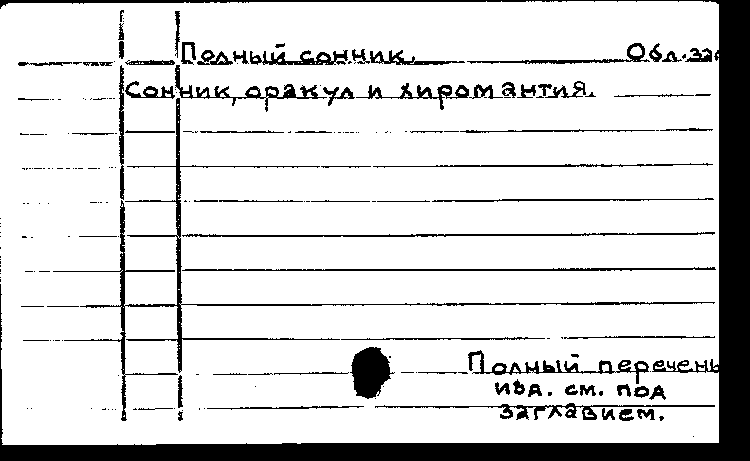 Полный сонник. Обл. заг
Сонник, оракул и хиромантия.
Полный перечень
изд. см. под
заглавием.